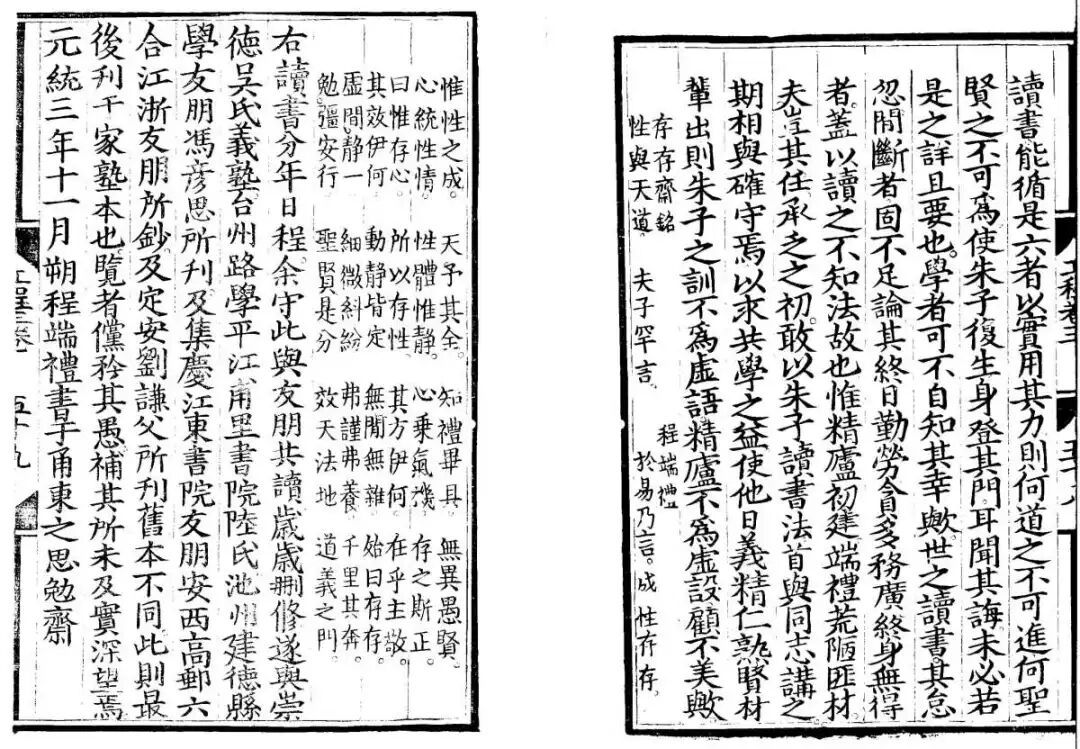 讀書能循是六者以實用其力則何道之不可進何聖
賢之不可爲使朱子復生身登其門耳聞其誨未必若
是之詳且要也學者可不自知其幸歟世之讀書其怠
忽閒斷者固不足論其終日勤勞貪多務廣終身無得
者蓋以讀之不知法故也惟精廬初建端禮荒陋匪材
夫豈其任承乏之初敢以朱子讀書法首與同志講之
期相與確守焉以求共學之益使他日義精仁熟賢材
輩出則朱子之訓不爲虛語精廬不爲虛設顧不美歟
存存齋銘 程端禮
性與天道 夫子罕言 於易乃言成性存存
惟性之成 天予其全 知禮畢具 無異愚賢
心統性情 性體惟靜 心乗氣機 存之斯正
曰惟存心 所以存性 其方伊何 在乎主敬
其效伊何 動靜皆定 無閒無雜 始曰存存
虛閒靜一 細微糾紛 弗謹弗養 千里其奔
勉彊安行 聖賢是分 效天法地 道義之門
右讀書分年日程余守此與友朋共讀歲歲刪修遂與崇
德吳氏義塾台州路學平江甫里書院陸氏池州建德縣
學友朋馮彥思所刋及集慶江東書院友朋安西高郵六
合江浙友朋所鈔及定安劉謙父所刋舊本不同此則最
後刋于家塾本也覽者儻矜其愚補其所未及實深望焉
元統三年十一月朔程端禮書于甬東之思勉齋
五十九